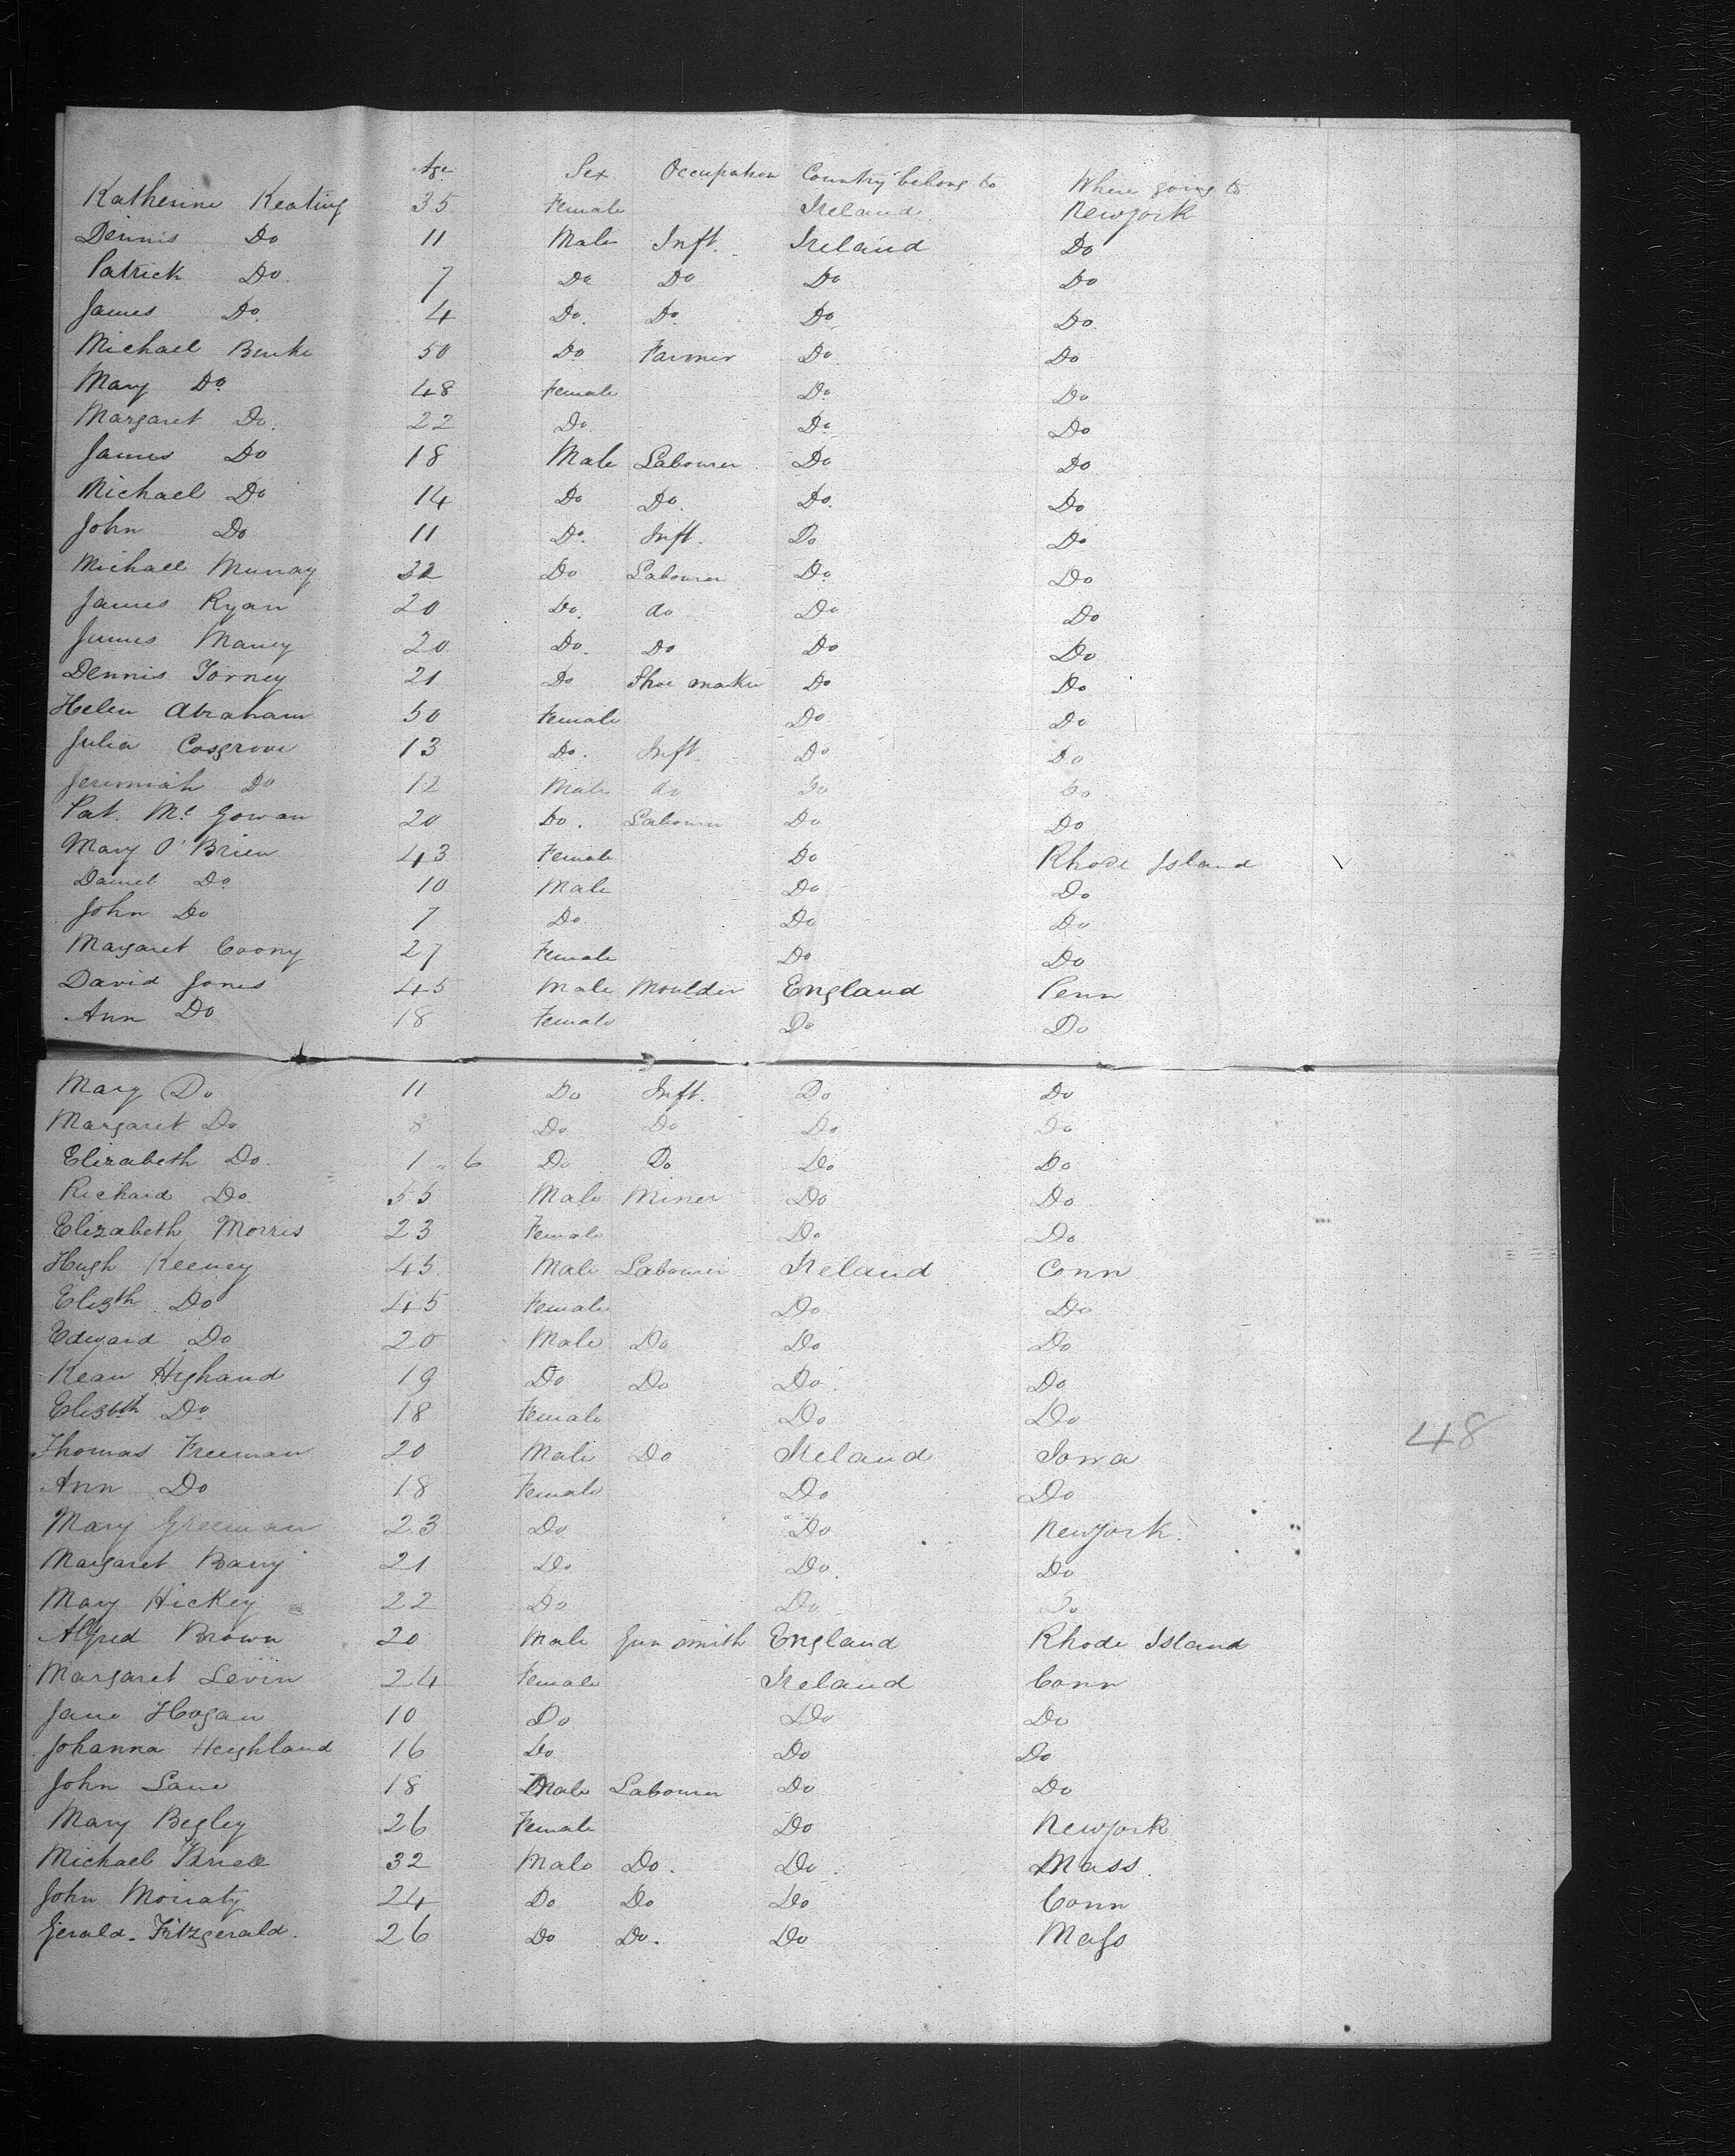 Age Sex Occupation Country belong to Where going to
Katherine Keating 35 Female Ireland Newyork
Dennis Do 11 Male Inft. Ireland Do
Patrick Do 7 Do Do Do Do
James Do 4 Do Do Do Do
Michael Burke 50 Do Farmer Do Do
Mary Do 48 Female Do Do
Margaret Do 22 Do Do Do
James Do 18 Male Labourer Do Do
Michael Do 14 Do Do Do Do
John Do 11 Do Inft. Do Do
Michael Murray 32 Do Labourer Do Do
James Ryan 20 Do do Do Do
James Maney 20 Do Do Do Do
Dennis Torney 21 Do Shoe maker Do Do
Helen Abraham 50 Female Do Do
Julia Cosgrove 13 Do Inft Do Do
Jeremiah Do 12 Male do Do Do
Pat. Mc Gowan 20 Do Labourer Do Do
Mary O'Brien 43 Female Do Rhode Island
Daniel Do 10 Male Do Do
John Do 7 Do Do Do
Margaret Coony 27 Female Do Do
David Jones 45 Male Moulder England Penn
Ann Do 18 Female Do Do
Mary Do 11 Do Inft. Do Do
Margaret Do 8 Do Do Do Do
Elizabeth Do 1 " 6 Do Do Do Do
Richard Do 55 Male Miner Do Do
Elizabeth Morris 23 Female Do Do
Hugh Keeney 45 Male Labourer Ireland Conn
Elizth Do 45 Female Do Do
Edward Do 20 Male Do Do Do
Kean Highand 19 Do Do Do Do
Elisbth Do 18 Female Do Do
48
Thomas Freeman 20 Male Do Ireland Iowa
Ann Do 18 Female Do Do
Mary Greeman 23 Do Do Newyork
Margaret Barry 21 Do Do Do
Mary Hickey 22 Do Do Do
Alfred Brown 20 Male Gun smith England Rhode Island
Margaret Levin 24 Female Ireland Conn
Jane Hogan 10 Do Do Do
Johanna Heighland 16 Do Do Do
John Lane 18 Male Labourer Do Do
Mary Begley 26 Female Do Newyork
Michael 32 Male Do. Do Mass.
John Moriaty 24 Do Do Do Conn
Gerald Fitzgerald 26 Do Do. Do Mass